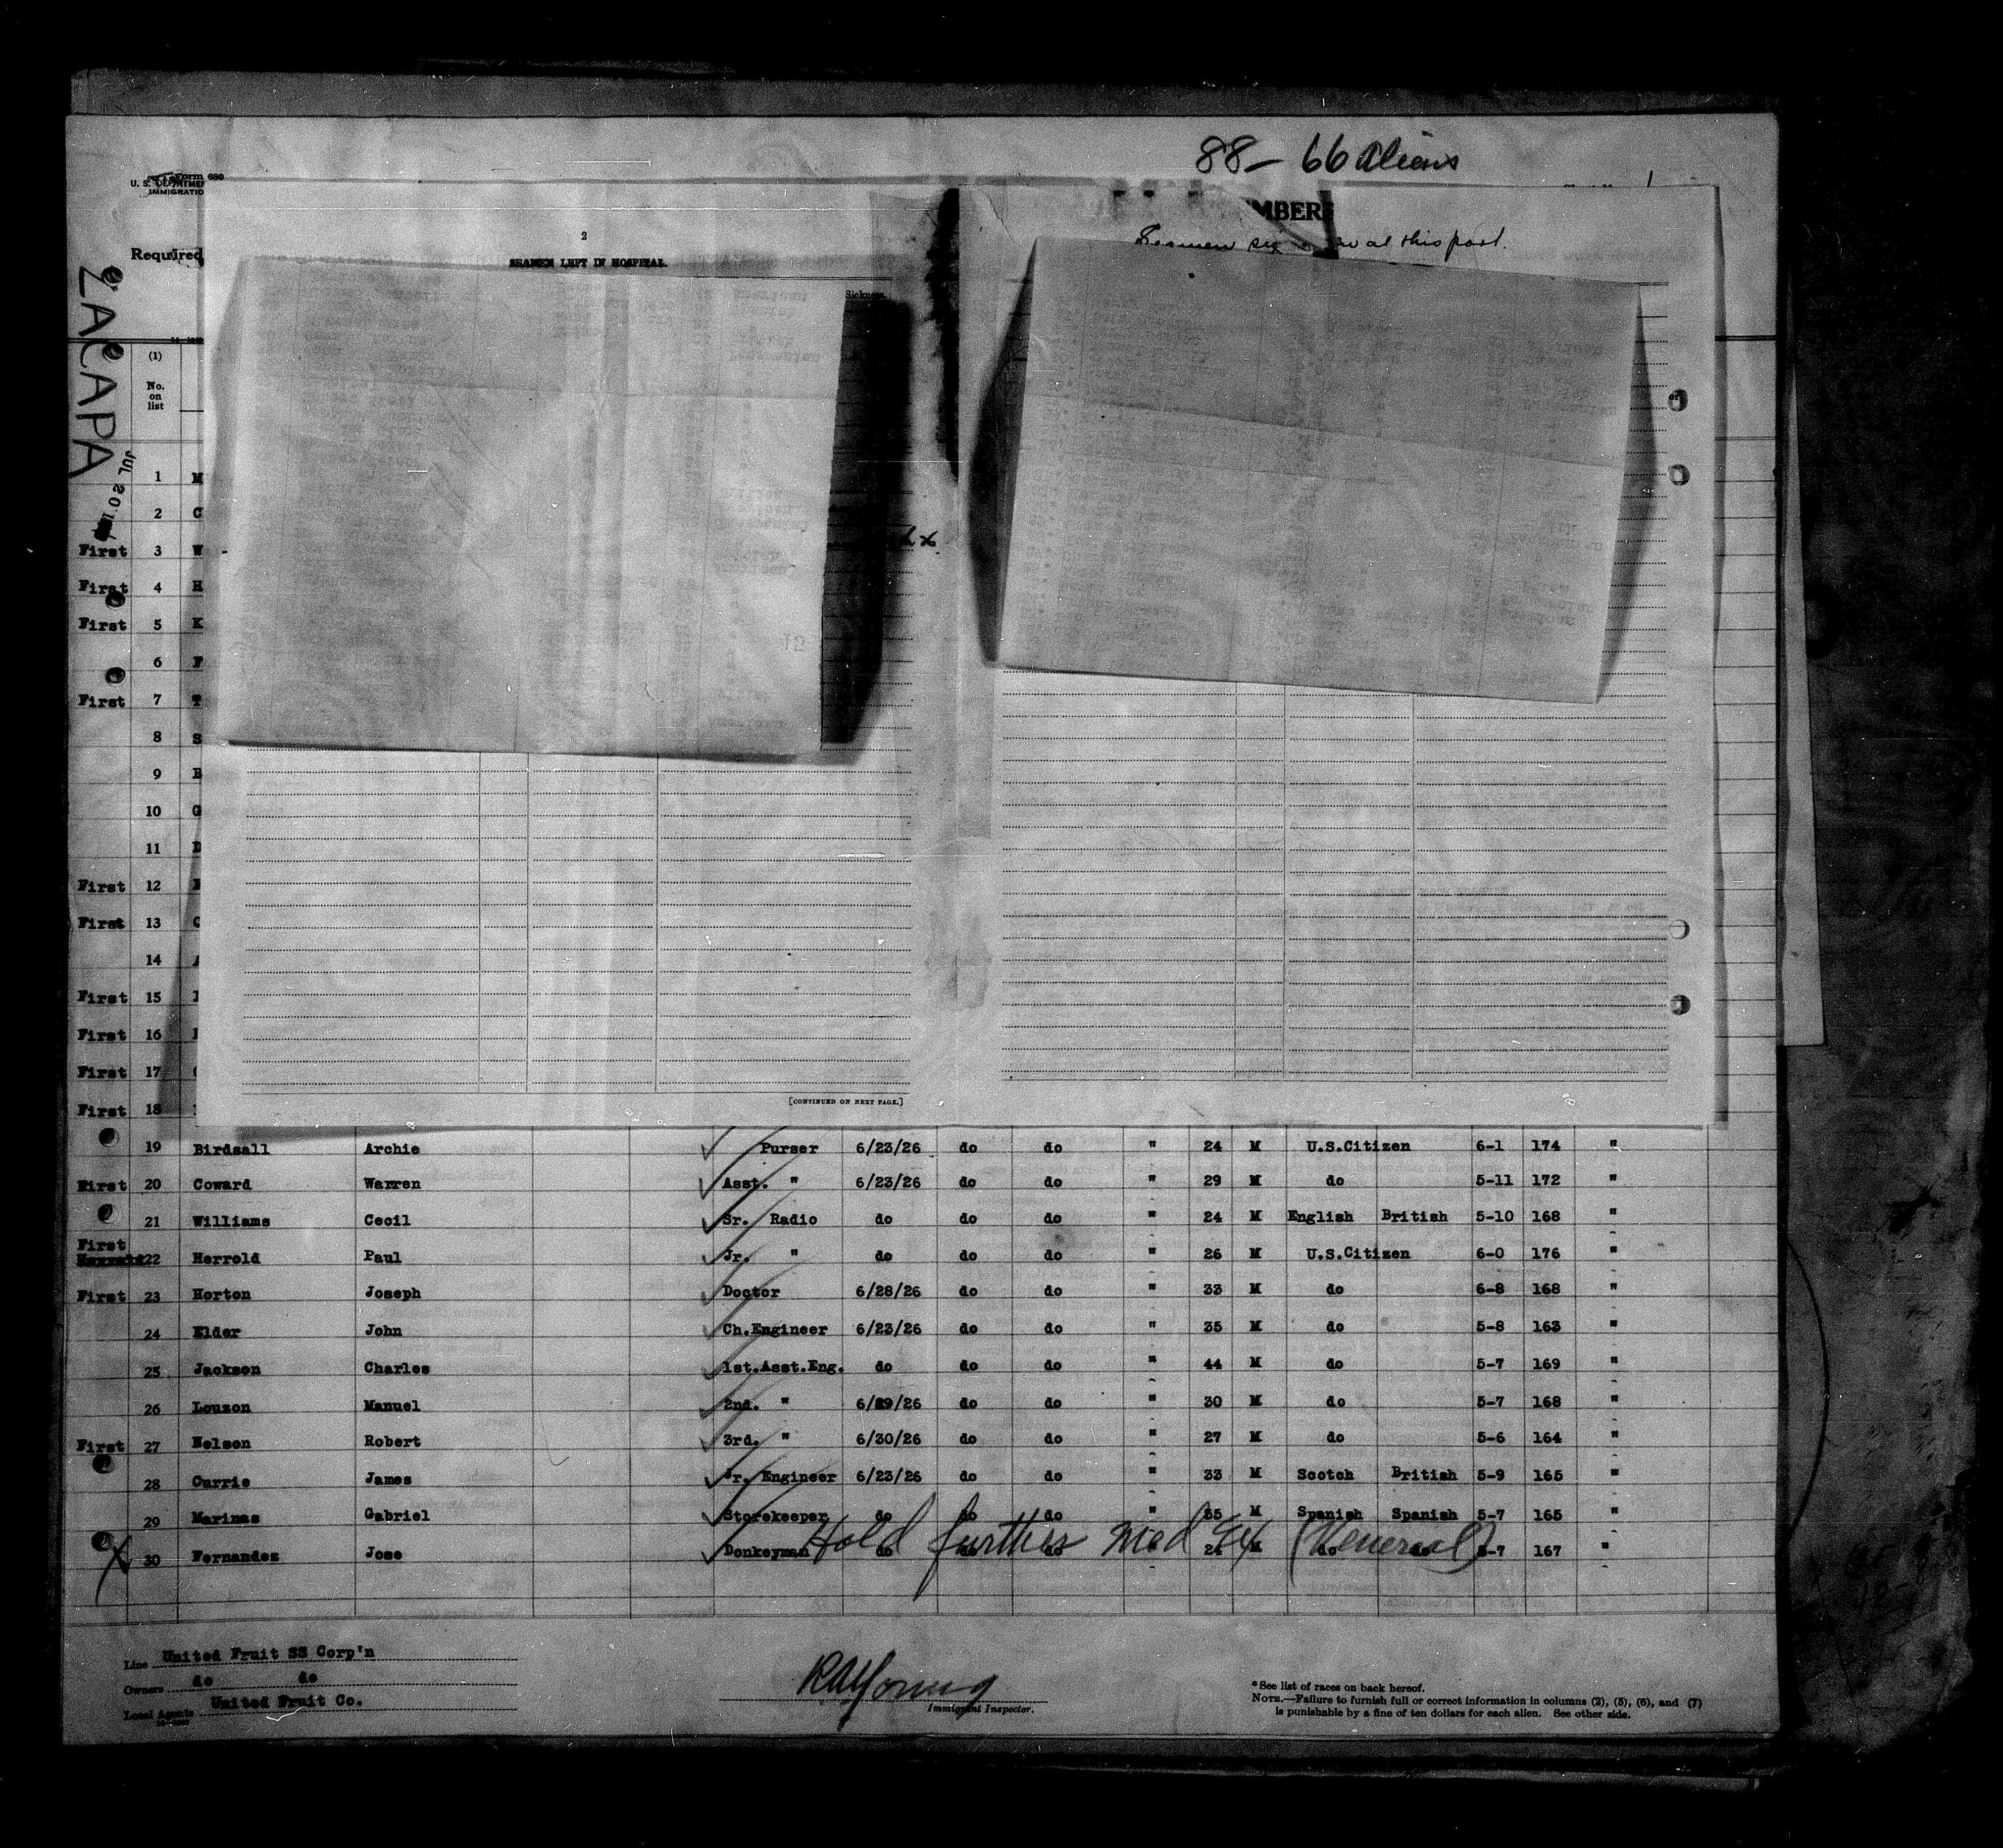 88- 66 Aliens
Form 680
U. S. DEPARTMEN
IMMIGRATIO
MBERS
2
Seamen at this port.
Required
SEAMEN LEFT IN HOSPITAL.
Sickness
ZACAPA
(1)
No.
on
list
1 M
2 C
First 3 W
First 4 H
First 5 K
6 F
First 7 T
8 S
9 B
10 G
11 D
First 12
First 13 C
14
First 15
First 16
First 17
First 18
[CONTINUED ON NEXT PAGE.]
19 Birdsall Archie Purser 6/23/26 do do " 24 M U.S.Citizen 6-1 174 "
First 20 Coward Warren Asst. " 6/23/26 do do " 29 M do 5-11 172 "
21 Williams Cecil Sr. Radio do do do " 24 M English British 5-10 168 "
First
22 Herrold Paul Jr. " do do do " 26 M U.S.Citizen 6-0 176 "
First 23 Horton Joseph Doctor 6/28/26 do do " 33 M do 6-8 168 "
24 Elder John Ch.Engineer 6/23/26 do do " 35 M do 5-8 163 "
25 Jackson Charles 1st.Asst.Eng. do do do " 44 M do 5-7 169 "
26 Louzon Manuel 2nd. " 6/29/26 do do " 30 M do 5-7 168 "
First 27 Nelson Robert 3rd. " 6/30/26 do do " 27 M do 5-6 164 "
28 Currie James Jr. Engineer 6/23/26 do do " 33 M Scotch British 5-9 165 "
29 Marinas Gabriel Storekeeper do do do " 35 M Spanish Spanish 5-7 165 "
Hold further Med Ex (Venereal)
X 30 Fernandez Jose Donkeyman do do do " 24 M do do 5-7 167 "
Line United Fruit SS Corp'n
Owners do do
Local Agents United Fruit Co.
RAYoung
Immigrant Inspector.
* See list of races on back hereof.
NOTE.—Failure to furnish full or correct information in columns (2), (5), (6), and (7)
is punishable by a fine of ten dollars for each alien. See other side.